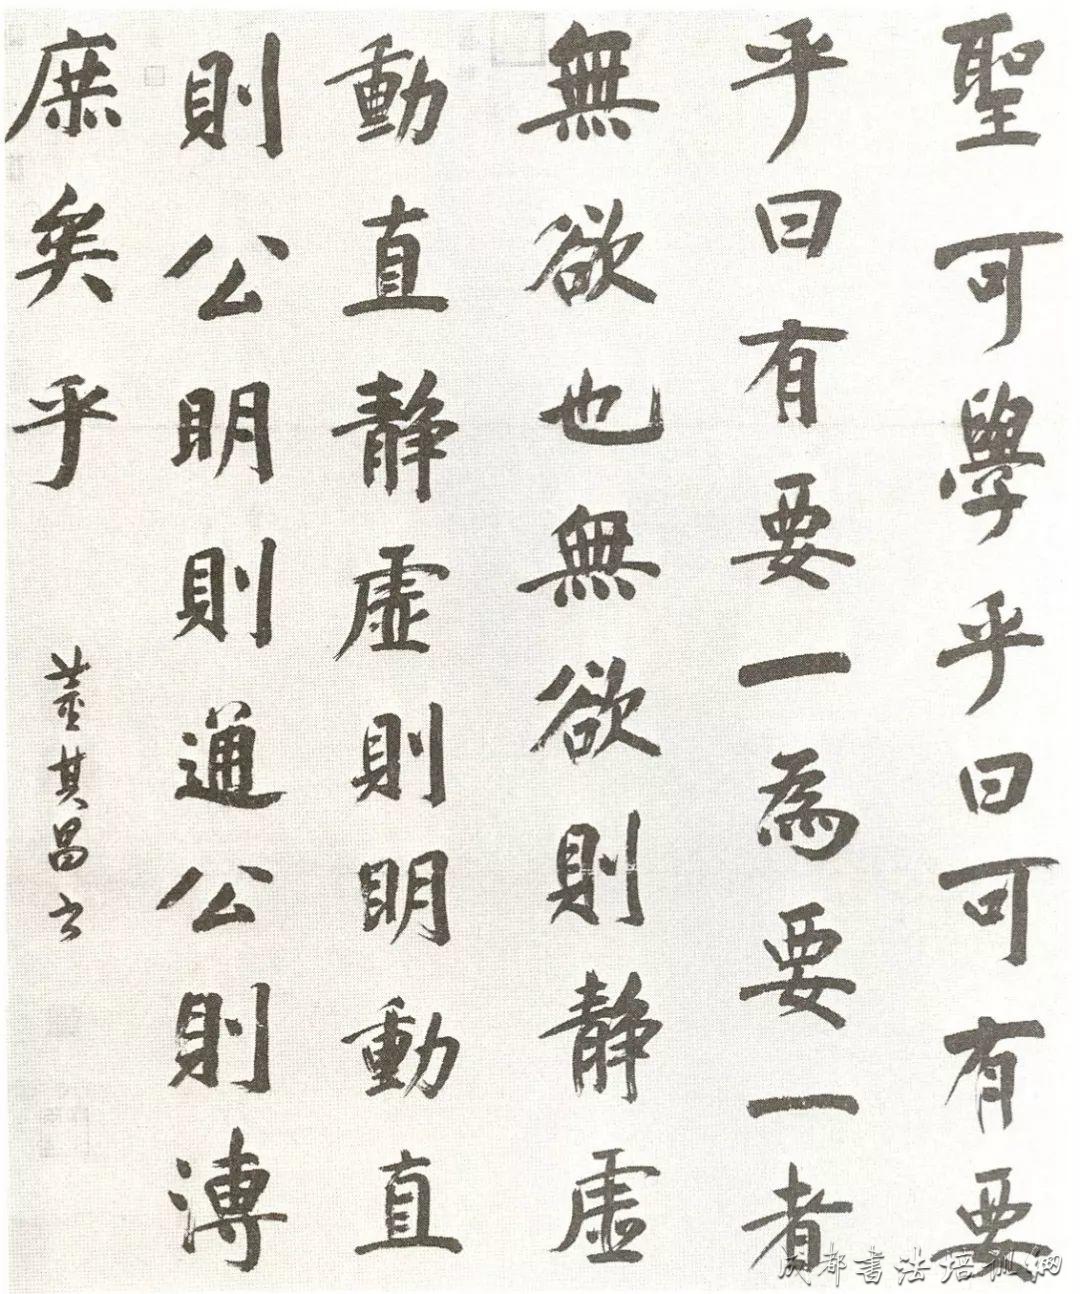 聖可學乎曰可有要
乎曰有要一為要一者
無欲也無欲則静虛
動直静虛則明動直
則公明則通公則溥
庶矣乎
董其昌書
成都書法培训網